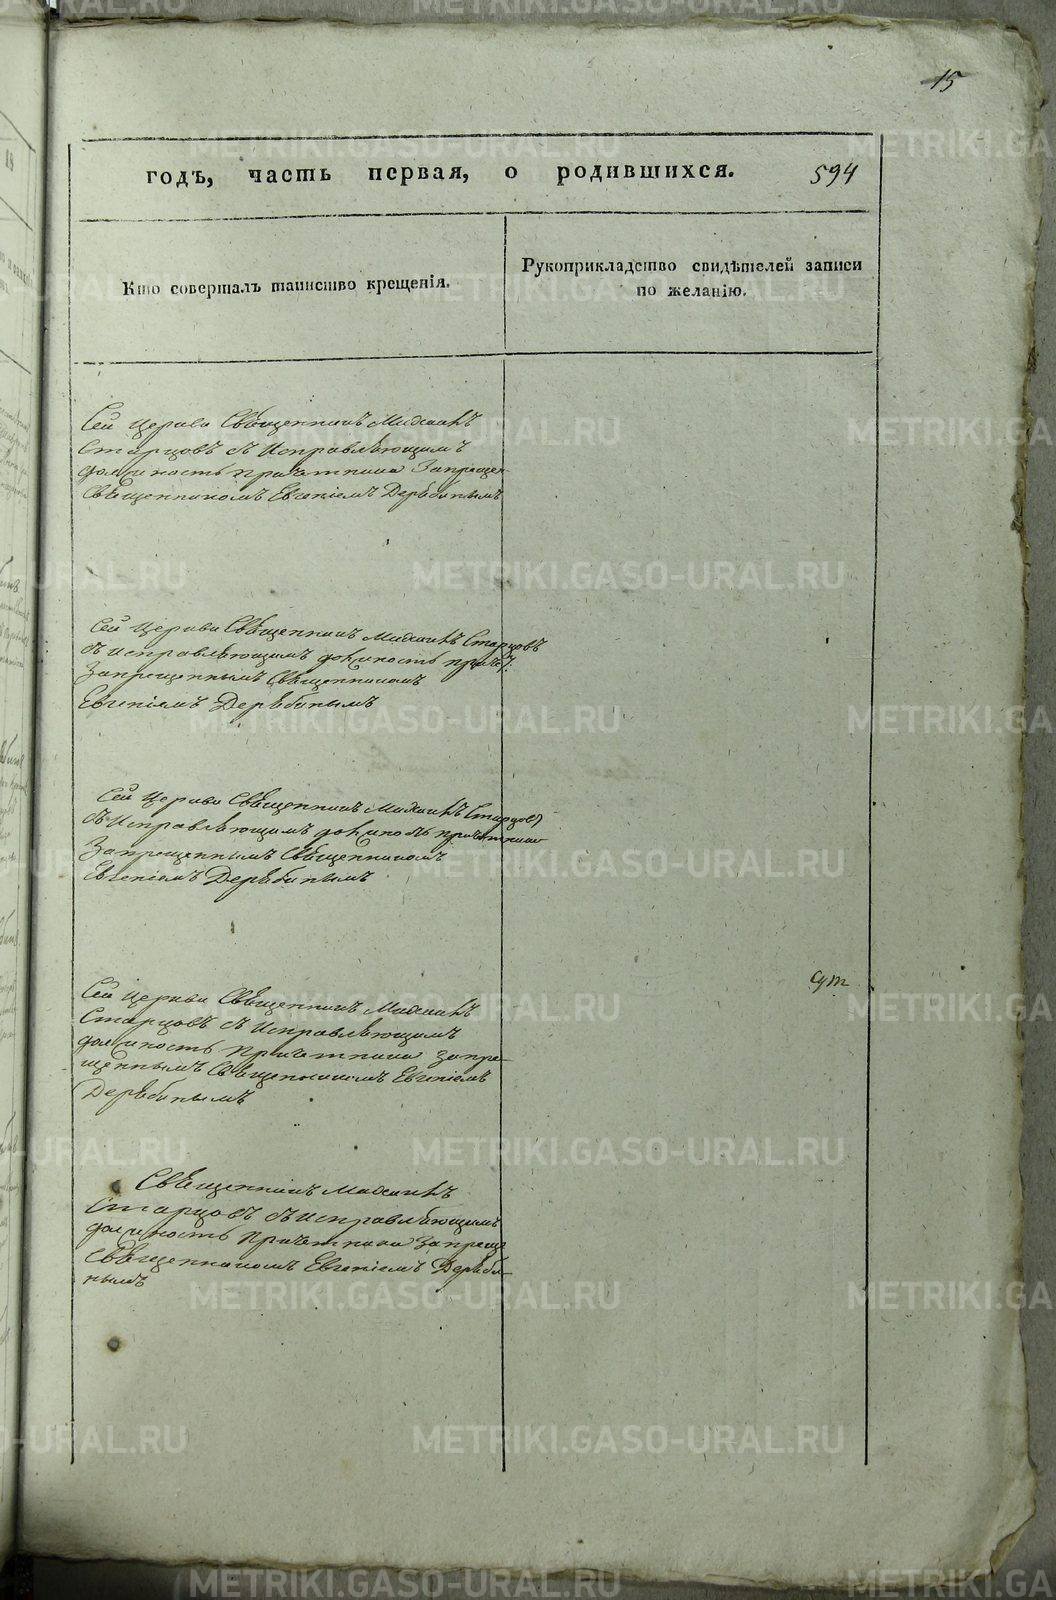 15
годъ, часть первая, о родившихся. 594
Кто совершалъ таинство крещенія.
Рукоприкладство свидѣтелей записи
по желанію.
Сей Церкви Священникъ Михаилъ
Старцовъ съ Исправляющимъ
должность причетника Запрещен
Священникомъ Евгеніемъ Дерябинымъ
Сей Церкви Священникъ Михаилъ Старцовъ
съ исправляющимъ должность причет.
Запрещеннымъ Священникомъ
Евгеніемъ Дерябинымъ
Сей Церкви Священникъ Михаилъ Старцовъ
съ Исправляющимъ должность причетника
Запрещеннымъ Священникомъ
Евгеніемъ Дерябинымъ
Сей Церкви Священникъ Михаилъ
Старцовъ съ Исправляющимъ
должность Причетника Запре-
щеннымъ Священникомъ Евгеніемъ
Дерябинымъ
Священникъ Михаилъ
Старцовъ съ исправляющимъ
должность Причетника Запреще
Священникомъ Евгеніемъ Деряби-
нымъ
METRIKI.GASO-URAL.RU